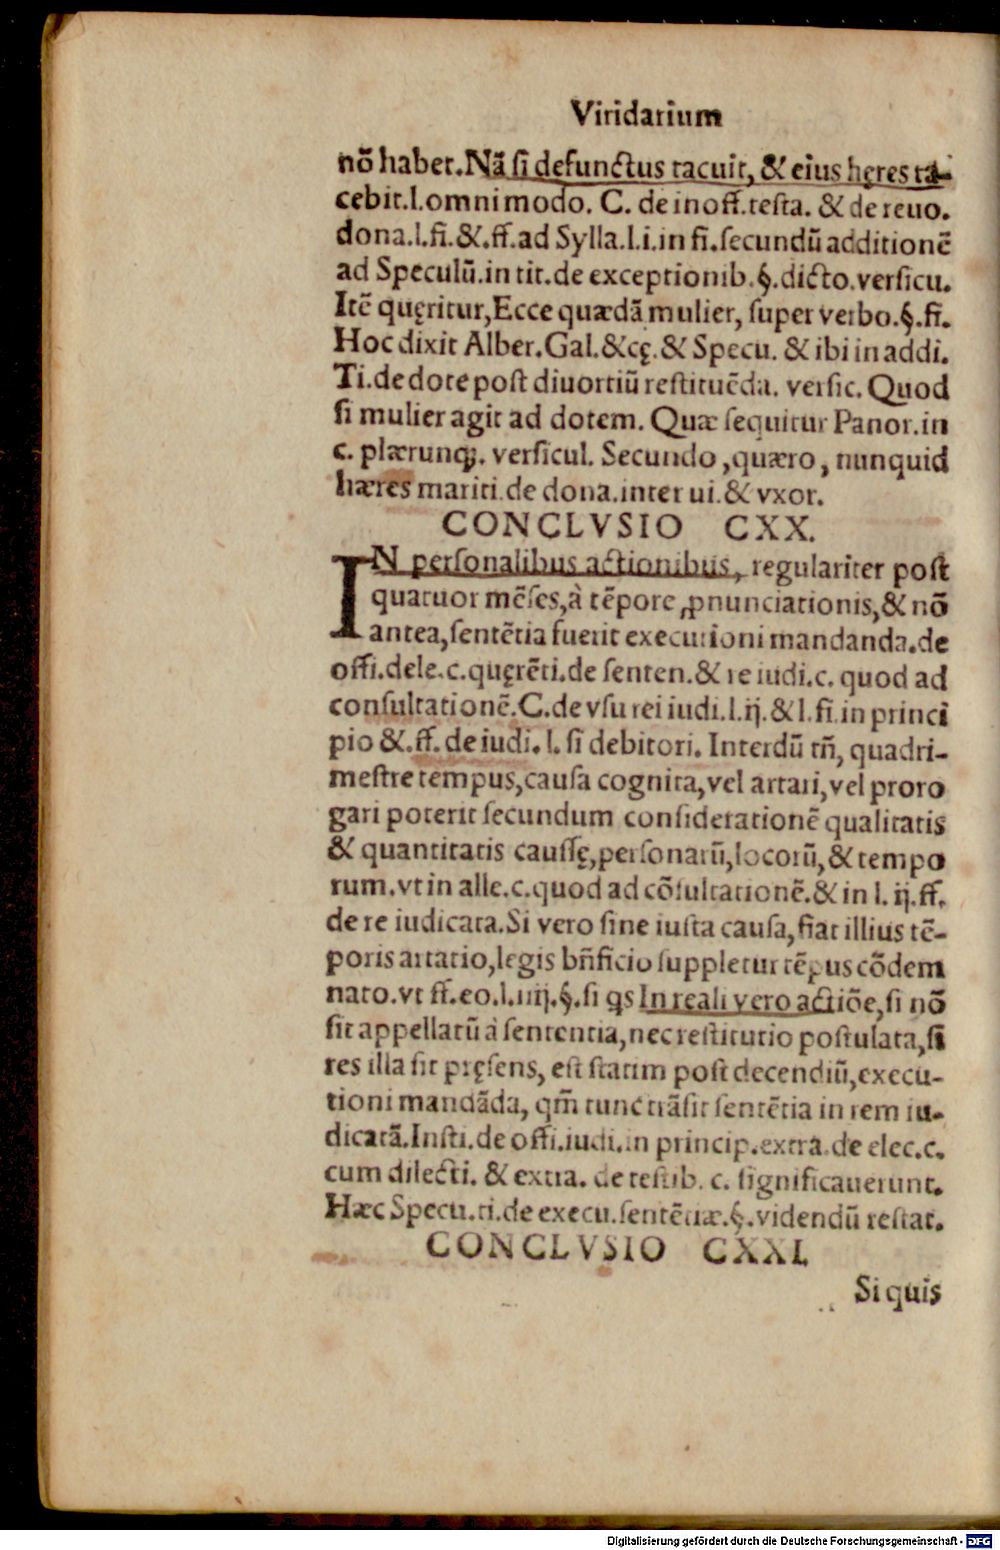 Viridarium
nõ habet. Nã ſi defunctus tacuit, & eius hęres ta-
cebit. l. omnimodo. C. de inoff. teſta. & de reuo.
dona. l. fi. &. ff. ad Sylla. l. i. in fi. ſecundũ additionẽ
ad Speculũ. in tit. de exceptionib. §. dicto. verſicu.
Itẽ quęritur, Ecce quædã mulier, ſuper verbo. §. fi.
Hoc dixit Alber. Gal. &cę. & Specu. & ibi in addi.
Ti. de dote poſt diuortiũ reſtituẽda. verſic. Quod
ſi mulier agit ad dotem. Quæ ſequitur Panor. in
c. plærunq;. verſicul. Secundo, quæro, nunquid
hæres mariti. de dona. inter ui. & vxor.
CONCLVSIO CXX.
IN perſonalibus actionibus, regulariter poſt
quatuor mẽſes, à tẽpore ꝓnunciationis, & nõ
antea, ſentẽtia fuerit executioni mandanda. de
offi. dele. c. quęrẽti. de ſenten. & re iudi. c. quod ad
conſultationẽ. C. de vſu rei iudi. l. ij. & l. fi. in princi
pio &. ff. de iudi. l. ſi debitori. Interdũ tñ, quadri-
meſtre tempus, cauſa cognita, vel artari, vel proro
gari poterit ſecundum conſiderationẽ qualitatis
& quantitatis cauſſę, perſonarũ, locorũ, & tempo
rum. vt in alle. c. quod ad cõſultationẽ. & in l. ij. ff.
de re iudicata. Si vero ſine iuſta cauſa, fiat illius tẽ-
poris artatio, legis bñficio ſuppletur tẽpus cõdem
nato. vt ff. eo. l. iiij. §. ſi qs In reali vero actiõe, ſi nõ
ſit appellatũ à ſententia, nec reſtitutio poſtulata, ſi
res illa ſit pręſens, eſt ſtatim poſt decendiũ, execu-
tioni mandãda, qm̃ tunc trãſit ſentẽtia in rem iu-
dicatã. Inſti. de offi. iudi. in princip. extra. de elec. c.
cum dilecti. & extra. de reſtib. c. ſignificauerunt.
Hæc Specu. ti. de execu. ſentẽtiæ. §. videndũ reſtat.
CONCLVSIO CXXI.
Si quis
Digitalisierung gefördert durch die Deutsche Forschungsgemeinschaft - DFG